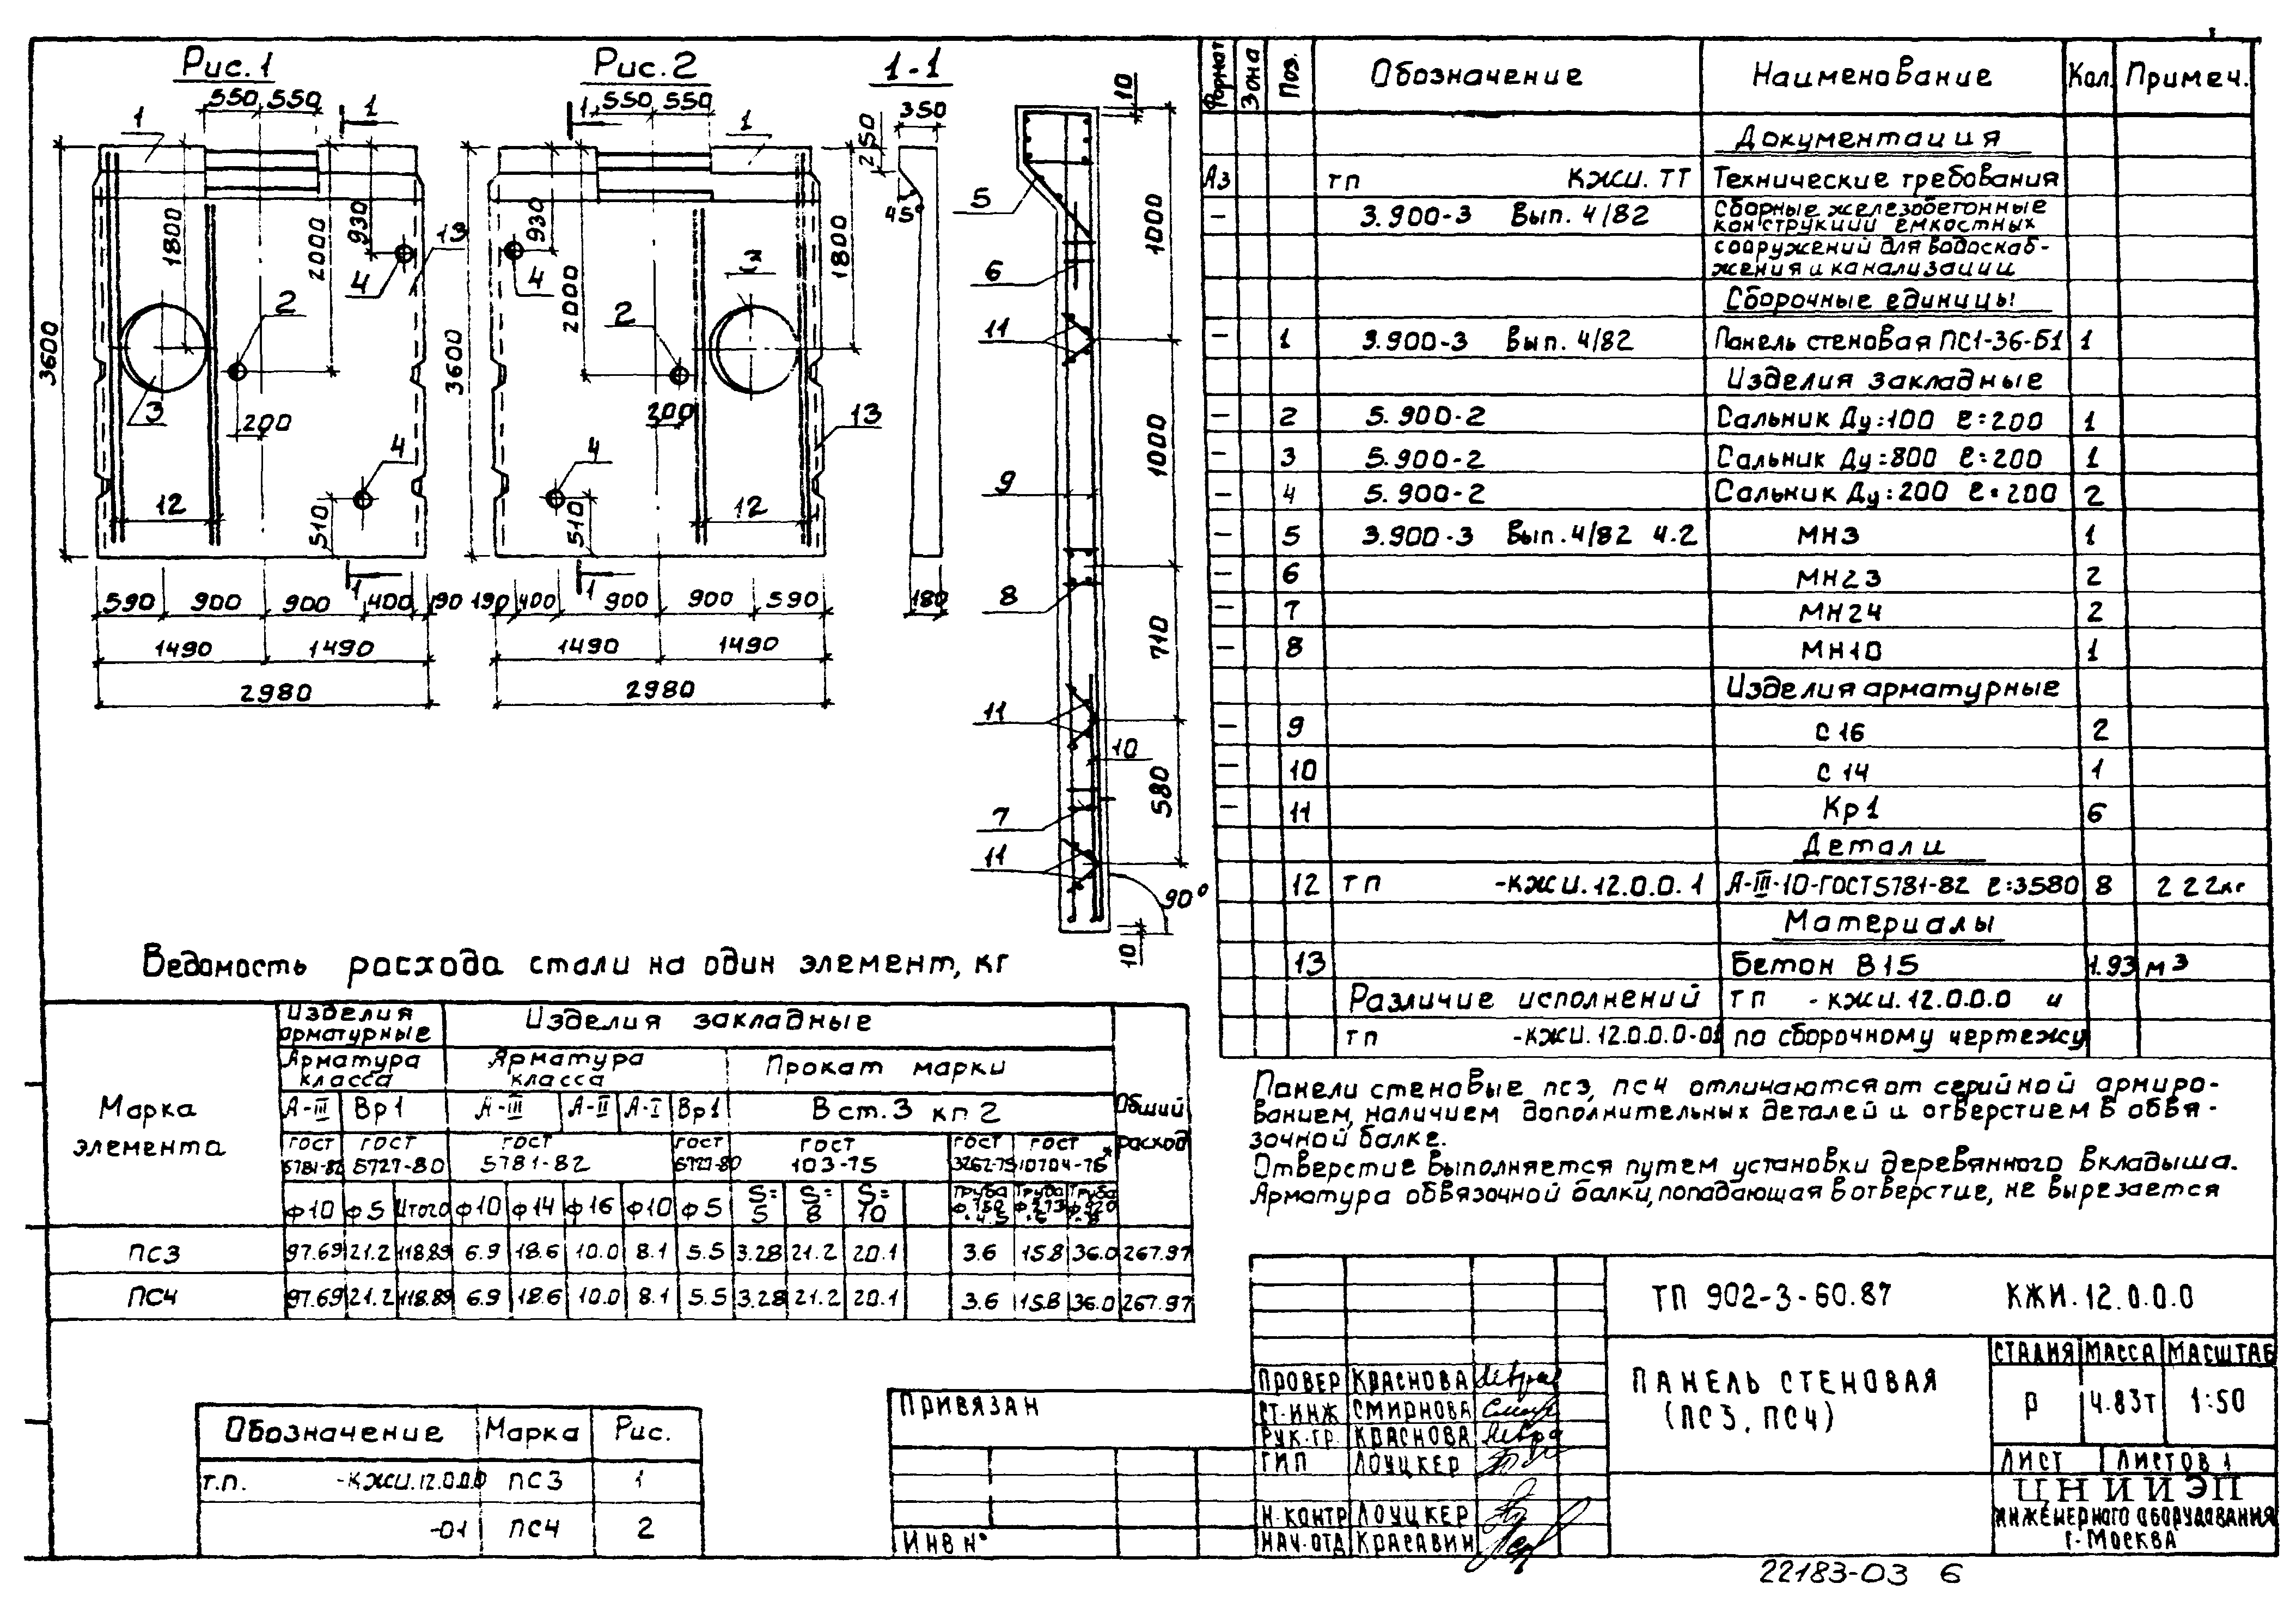 Рис.1
550 550
1
1
3600
1800
2000
930
4
13
2
3
200
4
12
510
1
590 900 900 400 190
1490 1490
2980
Рис.2
550 550
1
1
3600
930
2000
1800
4
2
200
13
4
12
510
1
190 400 900 900 590
1490 1490
2980
1-1
350
250
45°
180
10
5
1000
6
11
1000
9
8
710
11
10
580
7
11
90°
10
Формат Зона Поз. Обозначение Наименование Кол. Примеч.
Документация
А3 ТП КЖИ.ТТ Технические требования
– 3.900-3 Вып. 4/82 Сборные железобетонные
конструкции емкостных
сооружений для водоснаб-
жения и канализации
Сборочные единицы
– 1 3.900-3 Вып. 4/82 Панель стеновая ПС1-36-Б1 1
Изделия закладные
– 2 5.900-2 Сальник Ду=100 ℓ=200 1
– 3 5.900-2 Сальник Ду=800 ℓ=200 1
– 4 5.900-2 Сальник Ду=200 ℓ=200 2
– 5 3.900-3 Вып. 4/82 ч.2 МН3 1
– 6 МН23 2
– 7 МН24 2
– 8 МН10 1
Изделия арматурные
– 9 С16 2
– 10 С14 1
– 11 Кр1 6
Детали
12 ТП -КЖИ.12.0.0.1 А-III-10-ГОСТ5781-82 ℓ=3580 8 2 2 2кг
Материалы
13 Бетон В15 1.93 м3
Различие исполнений ТП -КЖИ.12.0.0.0 и
ТП -КЖИ.12.0.0.0-01 по сборочному чертежу
Ведомость расхода стали на один элемент, кг
Марка элемента
Изделия арматурные Изделия закладные Общий расход
Арматура класса Арматура класса Прокат марки
А-III Вр1 А-III А-II А-I Вр1 Вст.3 кп2
ГОСТ 5781-82 ГОСТ 6727-80 ГОСТ 5781-82 ГОСТ 6727-80 ГОСТ 103-75 ГОСТ 3262-75 ГОСТ 10704-76*
ф10 ф5 Итого ф10 ф14 ф16 ф10 ф5 S=5 S=8 S=10 Труба Труба ф273 Труба ф920
ПС3 97.69 21.2 118.89 6.9 18.6 10.0 8.1 5.5 3.28 21.2 20.1 3.6 15.8 36.0 267.97
ПС4 97.69 21.2 118.89 6.9 18.6 10.0 8.1 5.5 3.28 21.2 20.1 3.6 15.8 36.0 267.97
Панели стеновые ПС3, ПС4 отличаются от серийной армиро-
ванием, наличием дополнительных деталей и отверстием в обвя-
зочной балке.
Отверстие выполняется путем установки деревянного вкладыша.
Арматура обвязочной балки, попадающая в отверстие, не вырезается
Обозначение Марка Рис.
Т.П. -КЖИ.12.0.0.0 ПС3 1
-01 ПС4 2
Привязан
Инв №
Провер Краснова
Ст.инж Смирнова
Рук.гр. Краснова
ГИП Лоуцкер
Н.контр Лоуцкер
Нач.отд Красавин
ТП 902-3-60.87 КЖИ.12.0.0.0
ПАНЕЛЬ СТЕНОВАЯ
(ПС3, ПС4)
СТАДИЯ МАССА МАСШТАБ
Р 4.83т 1:50
ЛИСТ ЛИСТОВ 1
ЦНИИЭП
ИНЖЕНЕРНОГО ОБОРУДОВАНИЯ
Г. МОСКВА
22183-03 6